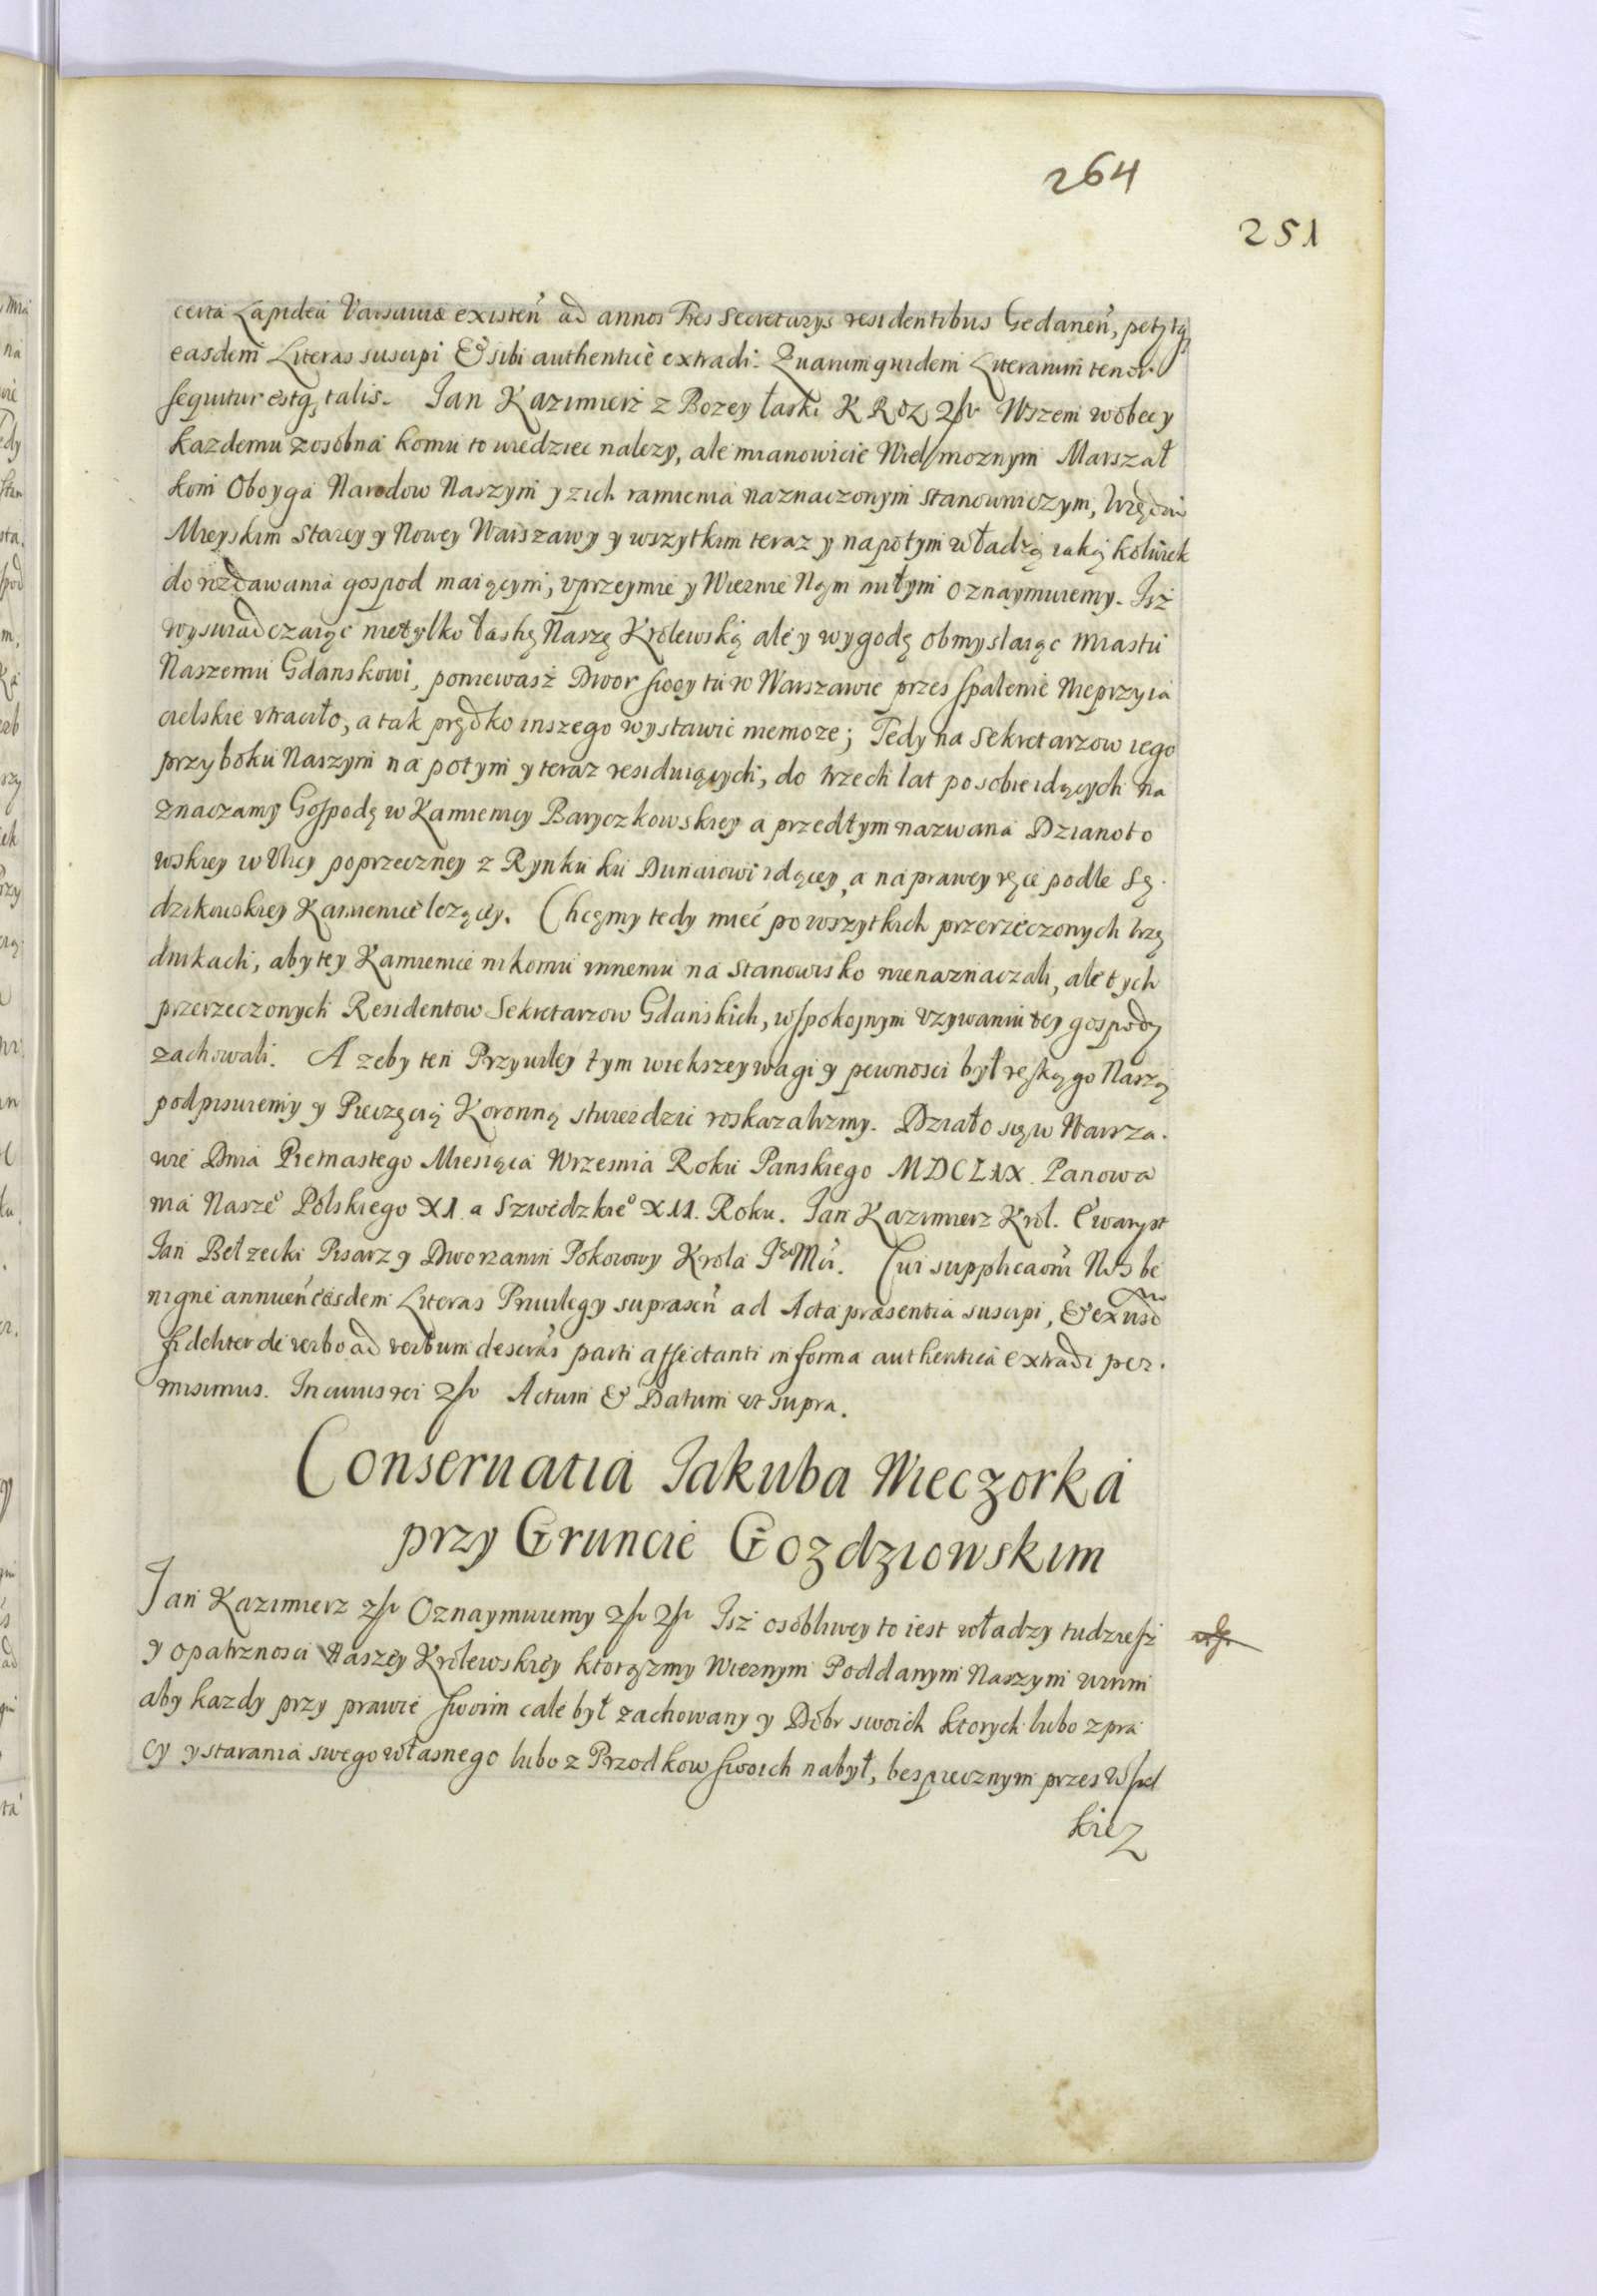 264
251
certa Lapidea Varsaviæ existeñ ad annos Tres Secretarys residentibus Gedaneñ, petytq,
easdem Literas suscipi & sibi authenticè extradi. Quarum quidem Literarum tenor
sequitur estq, talis. Jan Kazimierz z Bozey łaski K R Wszem wobec y
kazdemu zosobna komu to wiedziec nalezy, ale mianowicie Wielmoznym Marszał
kom Oboyga Narodow Naszym y zich ramienia naznaczonym stanowniczym, Vrzędom
Mieyskim Starey y Nowey Warszawy y wszytkim teraz y napotym władzą iaką kolwiek
do rozdawania gospod maiącym, vprzeymie y Wiernie Nąm miłym oznaymuiemy. Jsz
wyswiadczaiąc nietylko łaskę Naszę Krolewską ale y wygodę obmyslaiąc Miastu
Naszemu Gdanskowi, poniewasz Dwor swoy tu w Warszawie przes spalenie Nieprzyia
cielskie vtraciło, a tak prędko inszego wystawic niemoze; Tedy na Sekretarzow iego
przy boku Naszym na potym y teraz residuiących, do trzech lat po sobie idących na
znaczamy Gospodę w Kamienicy Baryczkowskiey a przedtym nazwana Dzianoto
wskiey w Vlicy poprzeczney z Rynku ku Dunaiowi idącey, a na prawey ręce podle Sę.
dzikowskiey Kamienice lezącey. Chcęmy tedy mieć po wszytkich przerzeczonych Vrzę
dnikach, aby tey Kamienice nikomu innemu na stanowisko nienaznaczali, ale tych
przerzeczonych Residentow Sekretarzow Gdańskich, w spokojnym vzywaniu tey gospody
zachowali. A zeby ten Przywiley tym wiekszey wagi y pewnosci był ręką go Naszą
podpisuiemy y Pieczęcią Koronną stwierdzic roskazalismy. Działo się w Warsza.
wie Dnia Pietnastego Miesiąca Wrzesnia Roku Panskiego MDCLIX Panowa
nia Nasze° Polskiego XI. a Szwedzkie° XII. Roku. Jan Kazimierz Krol. Ewaryst
Jan Bełzecki Pisarz y Dworzanin Pokoiowy Krola Mći. Cui supplicaõni Nos be
nigne annueñ easdem Literas Priuilegy suprascñ ad Acta præsentia suscipi, &
fideliter de verbo ad verbum descrãs parti affectanti in forma authentica extradi per.
misimus. In cuius rei Actum & Datum vt supra.
Conseruatia Jakuba Wieczorka
przy Gruncie Gozdziowskim
Jan Kazimierz Oznaymuiemy Jsż osobliwey to iest władzy tudziesż
y opatrznosci Naszey Krolewskiey ktorąsmy Wiernym Poddanym Naszym winni
aby kazdy przy prawie swoim cale był zachowany y Dobr swoich ktorych lubo z pra
cy y starania swego własnego lubo z Przodkow swoich nabył, bespiecznym przes wszel
kie